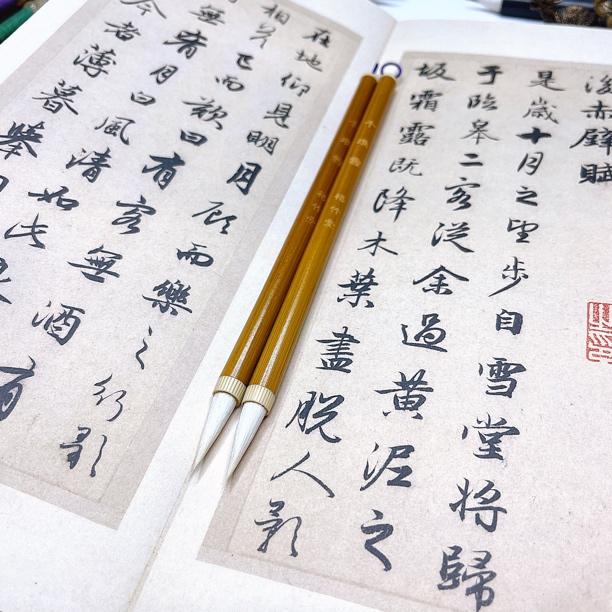 後赤壁賦
是歲十月之望步自雪堂將歸
于臨皋二客從余過黃泥之
坂霜露既降木葉盡脫人影
在地仰見明月顧而樂之行
相答已而歎曰有客無酒有
無肴月白風清如此良
今者薄暮舉